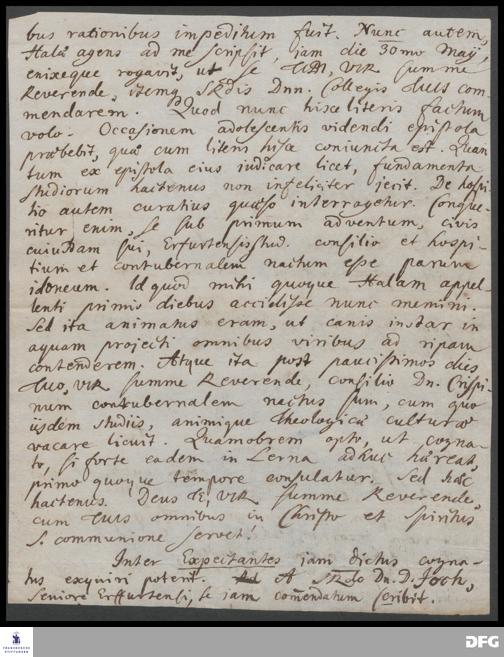 bus rationibus impeditum fuit. Nunc autem,
Halâ agens ad me scripsit, iam die 30mo Maij,
enixeque rogavit, ut se TIBI, VIR summe
Reverende, itemq Dnn. Collegis TUIS com-
mendarem. Quod nunc hisce literis factum
volo. Occasionem adolescentis videndi epistola
præbebit, quæ cum literis hisce coniuncta est. Quan-
tum ex epistola eius iudicare licet, fundamenta
studiorum hactenus non infeliciter iecit. De hospi-
tio autem curatius quæso interrogetur. Conque-
ritur enim, se sub primum adventum, civis
cuiusdam sui, Erfurtensis stud. consilio et hospi-
tium et contubernalem nactum esse parum
idoneum. Id quod mihi quoque Halam appel-
lenti primis diebus accidisse nunc memini.
Sed ita animatus eram, ut canis instar in
aquam projecti omnibus viribus ad ripam
contenderem. Atque ita post paucissimos dies
TUO, VIR summe Reverende, consilio Dn. Crispi-
num contubernalem nactus sum, cum quo
iisdem studiis, animique Theologicæ culturæ
vacare licuit. Quamobrem opto, ut cogna-
to, si forte eadem in Lerna adhuc hæreat,
primo quoque tempore consulatur. Sed hæc
hactenus. Deus TE, VIR summe Reverende,
cum TUIS omnibus in Christo et Spiritus
S. communione servet!
Inter Expectantes iam dictus cogna-
tus exquiri poterit. A Dn. D. Joch,
Seniore Erffurtensi, se iam comendatum scribit.
FRANCKESCHE
STIFTUNGEN
DFG